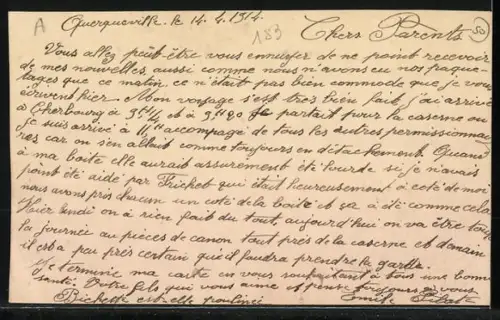 A
Querqueville. le 14. 4. 1914.
183
50
Chers Parents
Vous allez peut-être vous ennuyer de ne point recevoir
de mes nouvelles, aussi comme nous n'avons eu nos paque-
tages que ce matin, ce n'était pas bien commode que je vous
écrivent hier. Mon voyage s'est très bien fait, j'ai arrivé
à Cherbourg à 3H 1/4 et à 3H20 je partait pour la caserne ou
je suis arrivé à 4H accompagé de tous les autres permissionnai-
res car on s'en allait comme toujours en détachement. Quant
à ma boite elle aurait assurément été lourde si je n'avais
point été aidé par Frichet qui était heureusement à coté de moi
nous avons pris chacun un coté de la boite et ça a été comme cela.
Hier lundi on a rien fait du tout, aujourd'hui on va être toute
la journée au pièces de canon tout près de la caserne et demain
il est a peu près certain qu'il faudra prendre la garde.
Je termine ma carte en vous souhaitant à tous une bonne
santé. Votre fils qui vous aime et pense toujours à vous
Bichette est-elle pouliné Emile